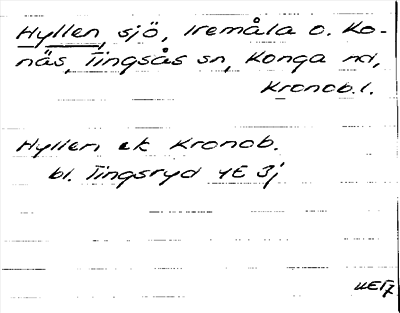 Hyllen, sjö, Iremåla o. Ko-
näs, Tingsås sn, Konga hd,
Kronob.l.
Hyllen ek Kronob.
bl. Tingsryd 4E 3j